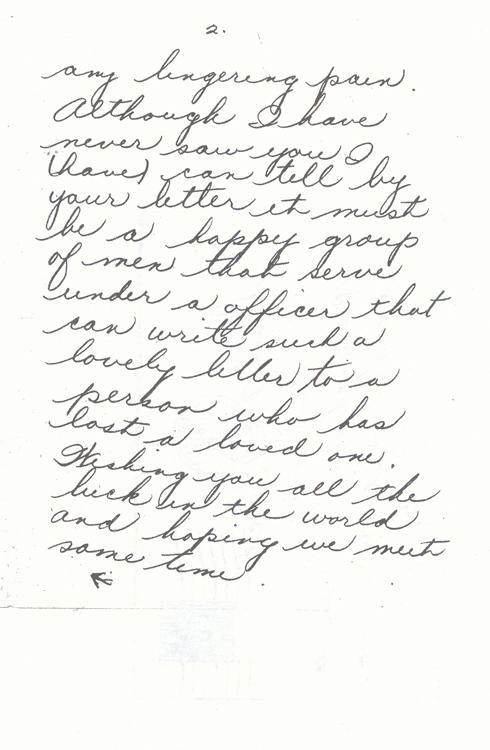 2.
any lingering pain.
Although I have
never saw you I
(have) can tell by
your letter it must
be a happy group
of men that serve
under a officer that
can write such a
lovely letter to a
person who has
lost a loved one.
Wishing you all the
luck in the world
and hoping we meet
some time